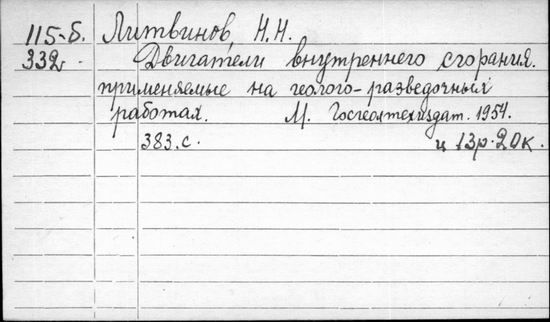 115-Б. Литвинов Н.Н.
332 Двигатели внутреннего сгорания.
применяемые на геолого-разведочных
работах. М. Госгеолтехиздат. 1954.
383.с. ц 13р.20к.